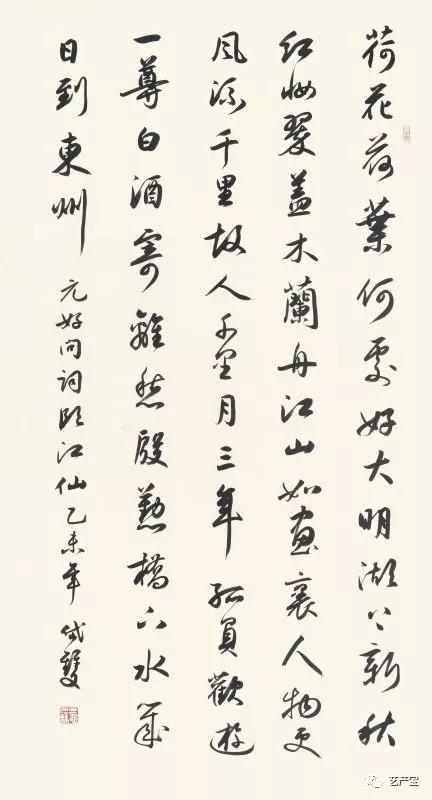 荷花荷葉何處好大明湖上新秋
紅妝翠蓋木蘭舟江山如畫裏人物更
風流千里故人千里月三年孤負歡遊
一尊白酒寄離愁殷勤橋下水幾
日到東州 元好問詞臨江仙 乙未年
艺产宝